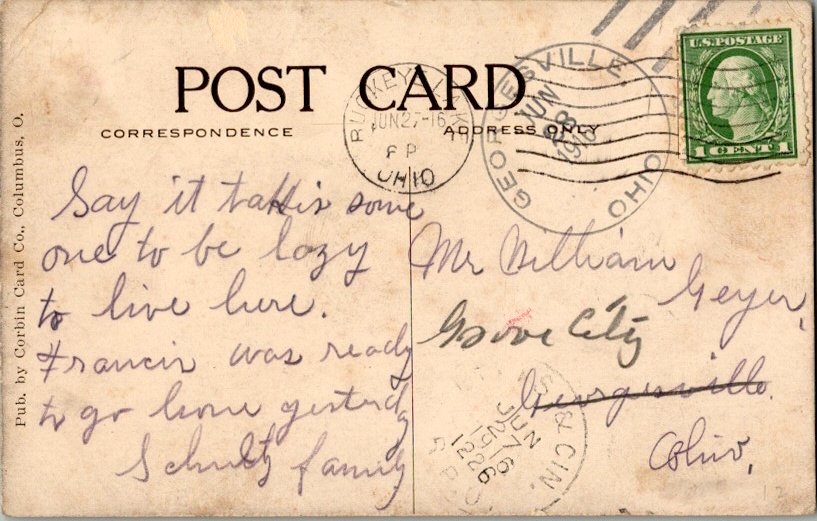 POST CARD
CORRESPONDENCE
ADDRESS ONLY
U.S. POSTAGE
1 CENT 1
BUCKEYE LAKE
JUN 27-16
P
OHIO
GEORGESVILLE,
JUN
28
1916
OHIO
Pub. by Corbin Card Co., Columbus, O.
Say it takis some
one to be lazy
to live here.
Francis was ready
to go home yesterdy
Schultz family
Mr William
Geyer,
Grove City
Georgesville.
Ohio,
& CIN.
JUN